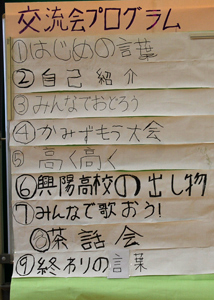 交流会プログラム
①はじめの言葉
②自己紹介
③みんなでおどろう
④かみずもう大会
⑤高く高く
⑥興陽高校の出し物
⑦みんなで歌おう!
⑧茶話会
⑨終わりの言葉